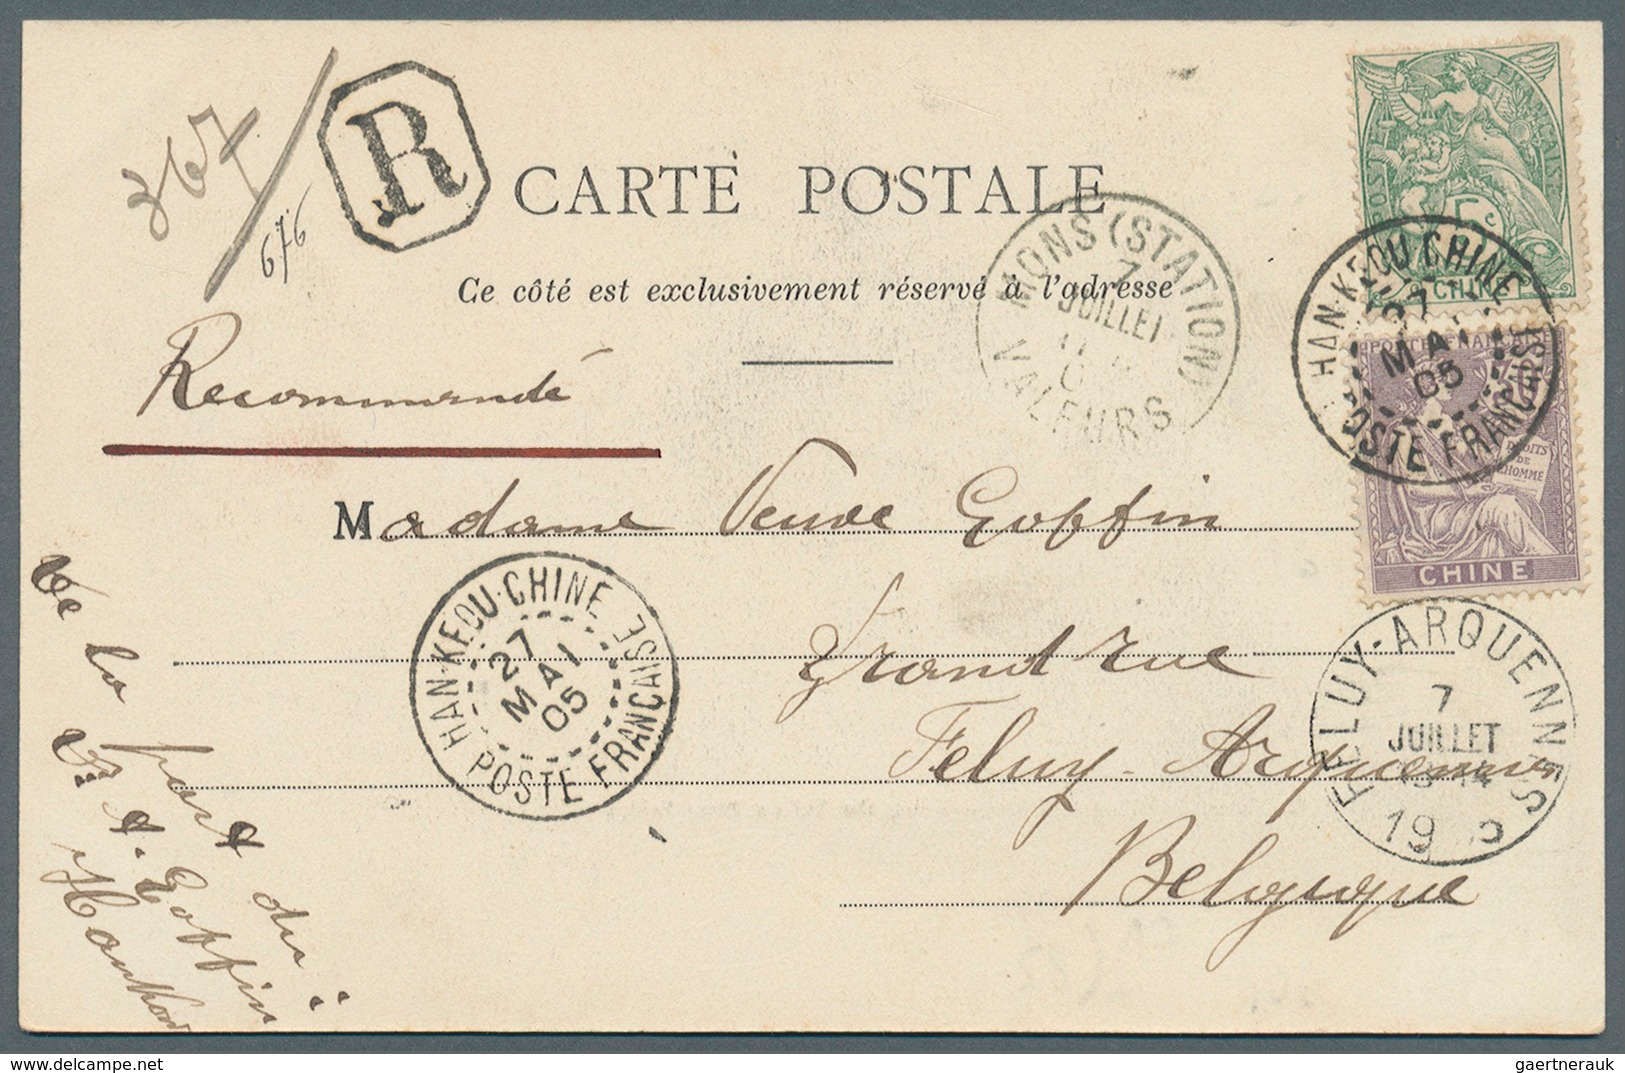 367
676
R
CARTE POSTALE
Ce côté est exclusivement réservé à l'adresse
Recommandé
Madame Veuve Goffin
Grand rue
Feluy-Arquennes
Belgique
De la part du
Dr A. Goffin
Hankow
MONS (STATION)
7
JUILLET
VALEURS
POSTE FRANÇAISE
5c
CHINE
HAN-KEOU-CHINE
27
MAI
05
POSTE FRANÇAISE
POSTE FRANÇAISE
DROITS
DE
L'HOMME
CHINE
HAN-KEOU-CHINE
27
MAI
05
POSTE FRANÇAISE
FELUY-ARQUENNES
7
JUILLET
13-14
19
Delcampe.net
gaertnerauk